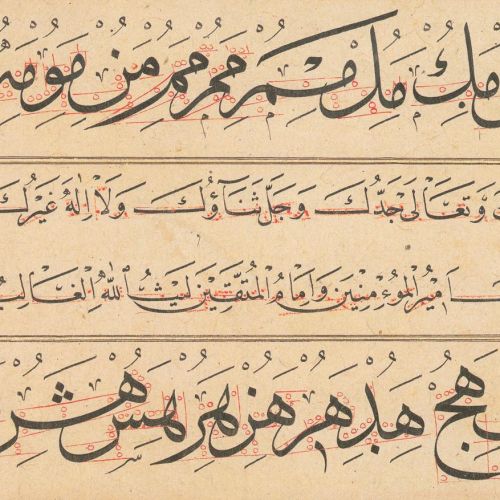 مك مل مم من مو مه
وَتَعَالَى جَدُّكَ وَجَلَّ ثَنَآؤُكَ وَلَا اِلٰهَ غَيْرُكَ
اَمِيْرُ الْمُؤْمِنِيْنَ وَاِمَامُ الْمُتَّقِيْنَ لَيْثُ اللّٰهِ الْغَالِبُ
هج هد هر